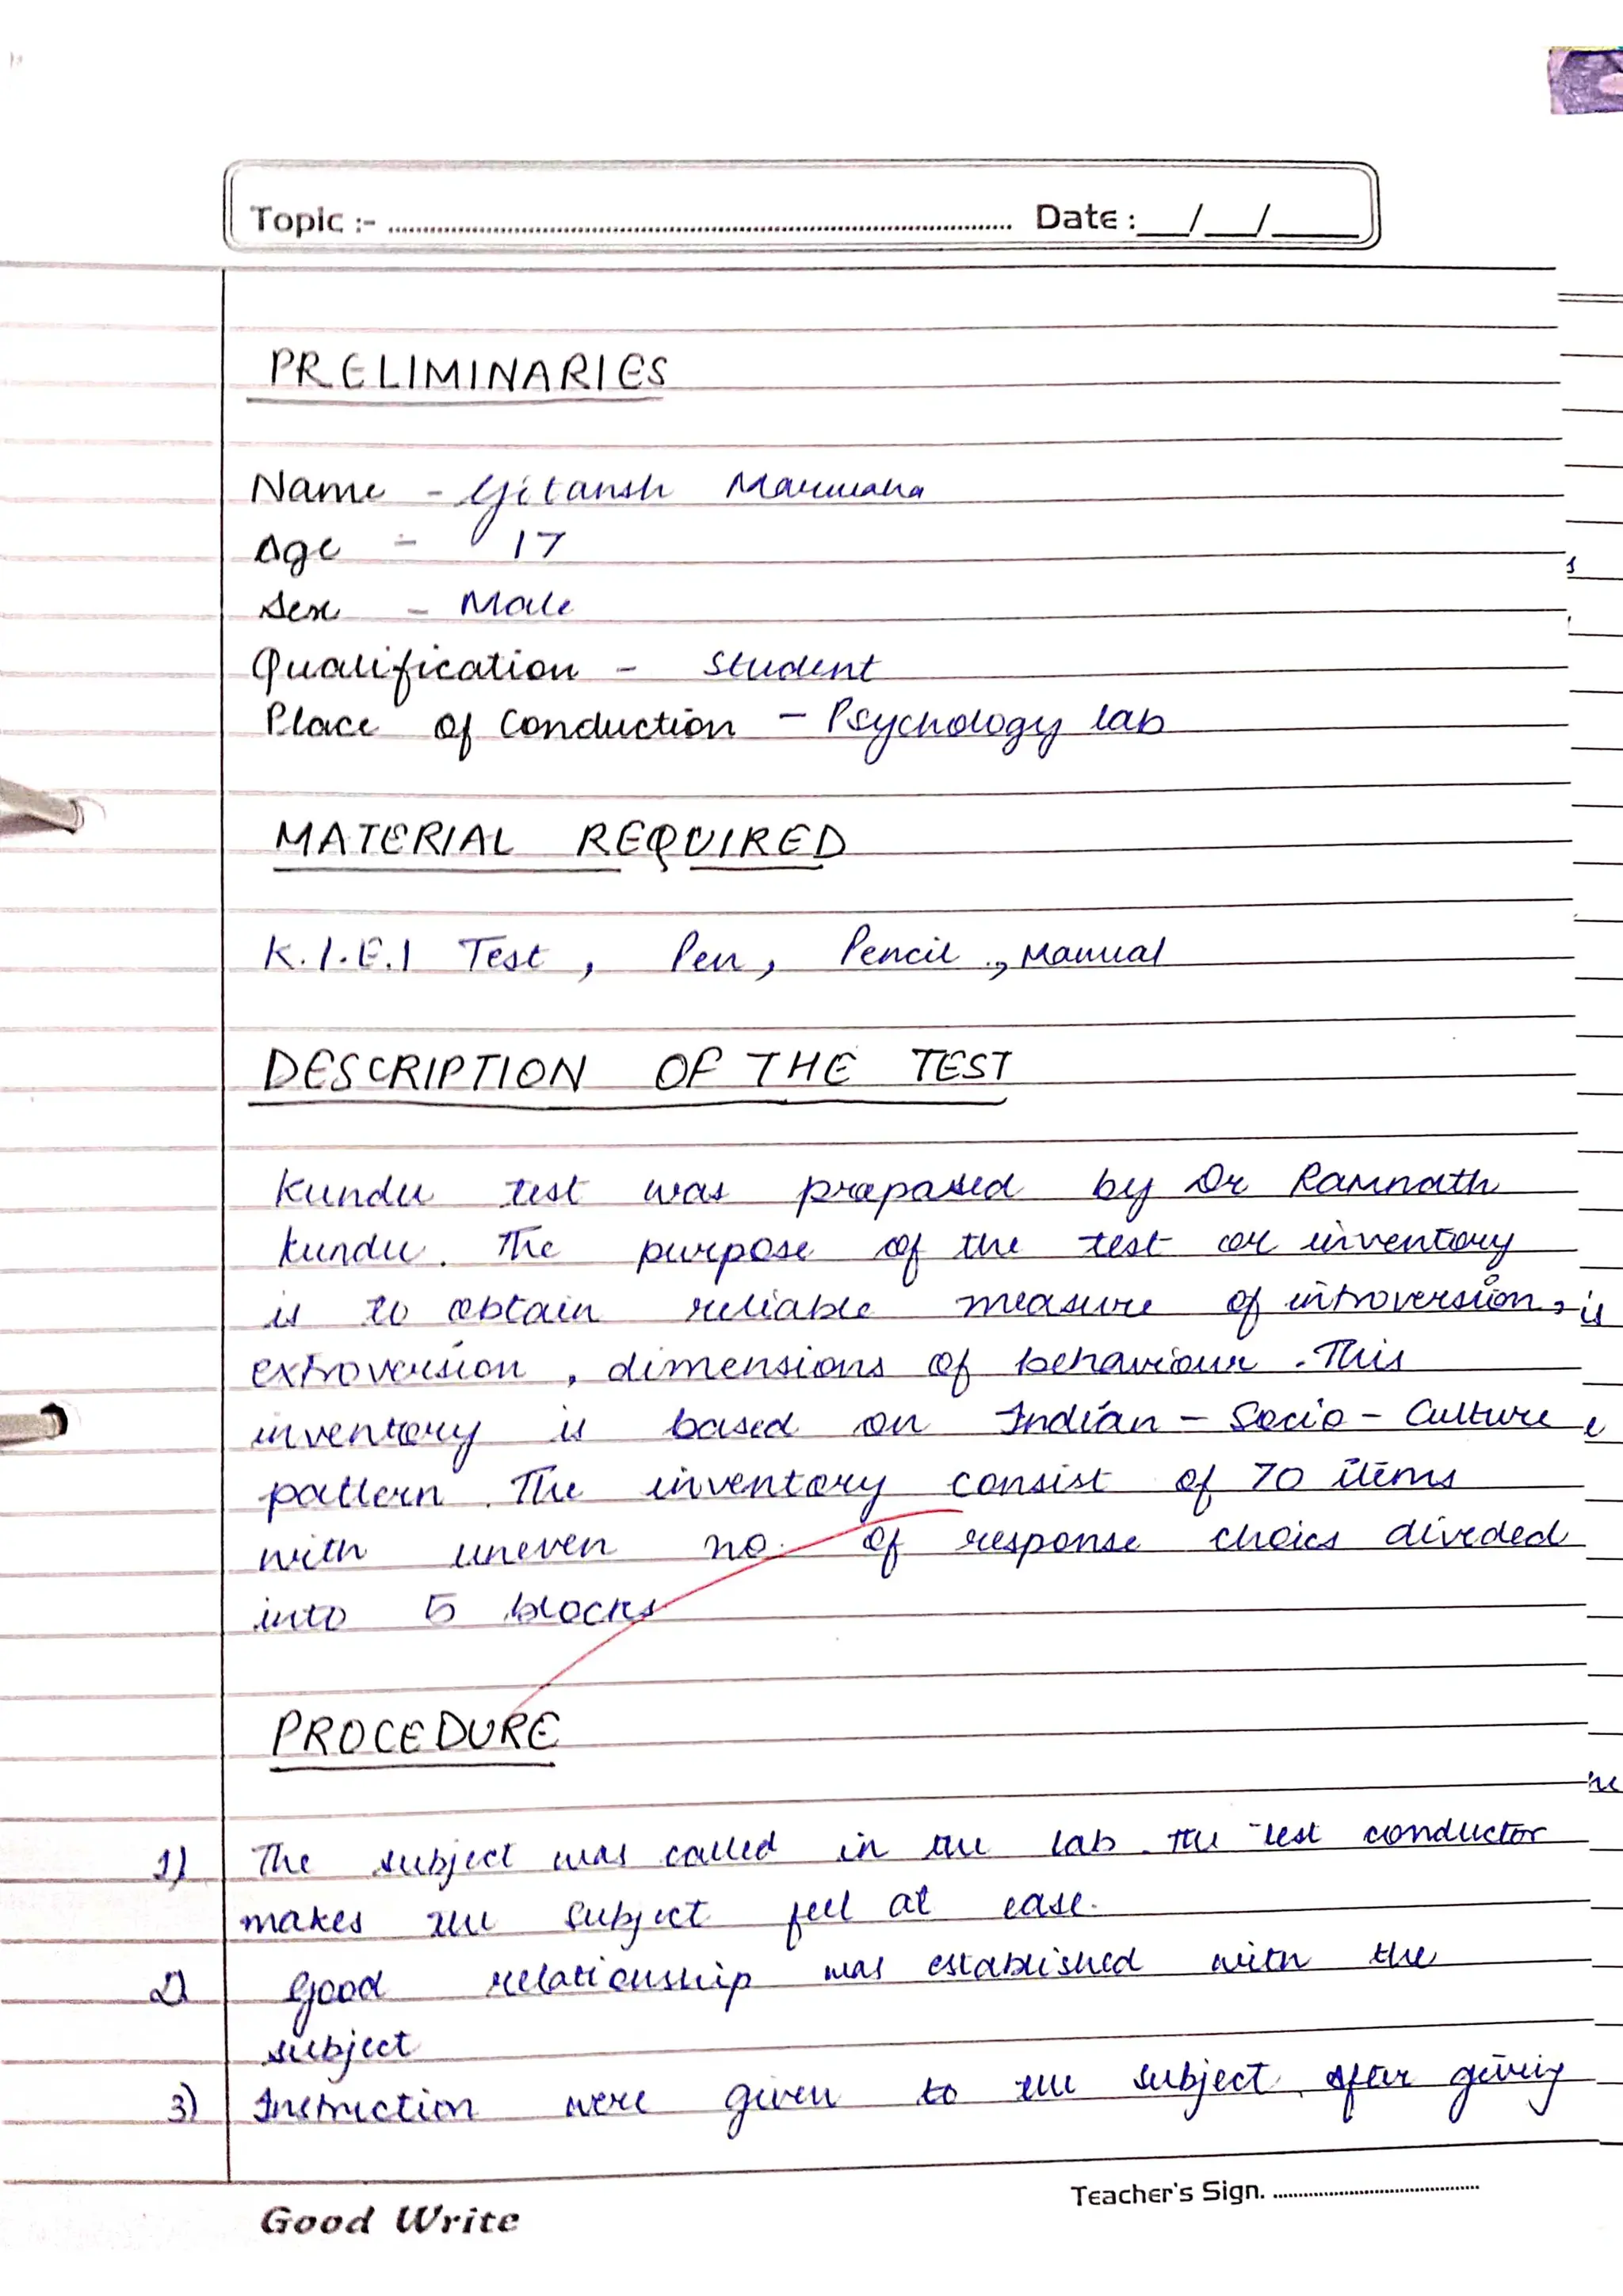 Topic :- ........................ Date : __/__/____
PRELIMINARIES
Name - Gitansh Marwaha
Age - 17
Sex - Male
Qualification - Student
Place of Conduction - Psychology lab
MATERIAL REQUIRED
K.I.E.I Test, Pen, Pencil, Manual
DESCRIPTION OF THE TEST
Kundu test was prepared by Dr Ramnath
kundu. The purpose of the test or inventory
is to obtain reliable measure of introversion,
extroversion, dimensions of behaviour. This
inventory is based on Indian - Socio - Culture
pattern. The inventory consist of 70 items
with uneven no. of response choics divided
into 5 blocks
PROCEDURE
1) The subject was called in the lab. The test conductor
makes the subject feel at ease.
2) Good relationship was established with the
subject
3) Instruction were given to the subject. After giving
Teacher's Sign. ........................
Good Write